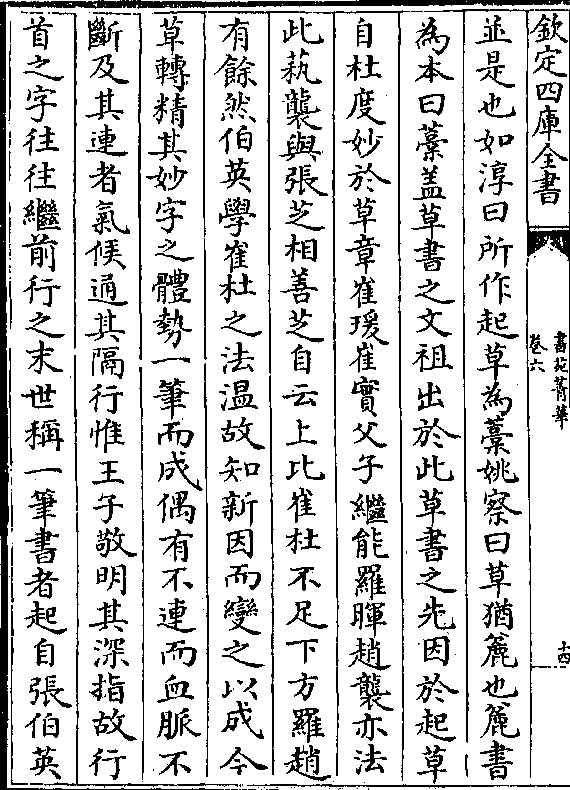 欽定四庫全書
書苑菁華
卷六
十四
並是也如淳曰所作起草為藁姚察曰草猶麄也麄書
為本曰藁盖草書之文祖出於此草書之先因於起草
自杜度妙於草章崔瑗崔寔父子繼能羅暉趙襲亦法
此蓺襲與張芝相善芝自云上比崔杜不足下方羅趙
有餘然伯英學崔杜之法温故知新因而變之以成今
草轉精其妙字之體勢一筆而成偶有不連而血脈不
斷及其連者氣候通其隔行惟王子敬明其深指故行
首之字往往繼前行之末世稱一筆書者起自張伯英